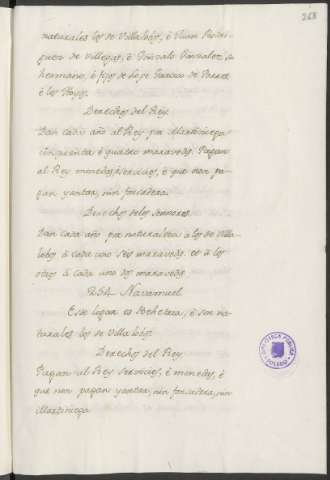 268
naturales los de Villalobos, é Ruiz Rodri-
guez de Villegas, é Gonzalo Gonzalez, su
hermano, é fijos de Lope Garcia de Porres
é los Rojos.
Derechos del Rey
Dan cada año al Rey por Martiniega
cinquenta é quatro maravedis. Pagan
al Rey monedas, é servicios, é que non pa-
gan yantar, nin fonsadera.
Derechos de los Señores
Dan cada año por naturaleza a los de Villa-
lobos á cada uno seis maravedis. et á los
otros á cada uno dos maravedis.
254 Navamuel
Este logar es Behetria, é son na-
turales los de Villalobos.
Derechos del Rey
Pagan al Rey servicios, é monedas, é
que non pagan yantar, nin fonsadera, nin
Martiniega
BIBLIOTECA PUBLICA
TOLEDO